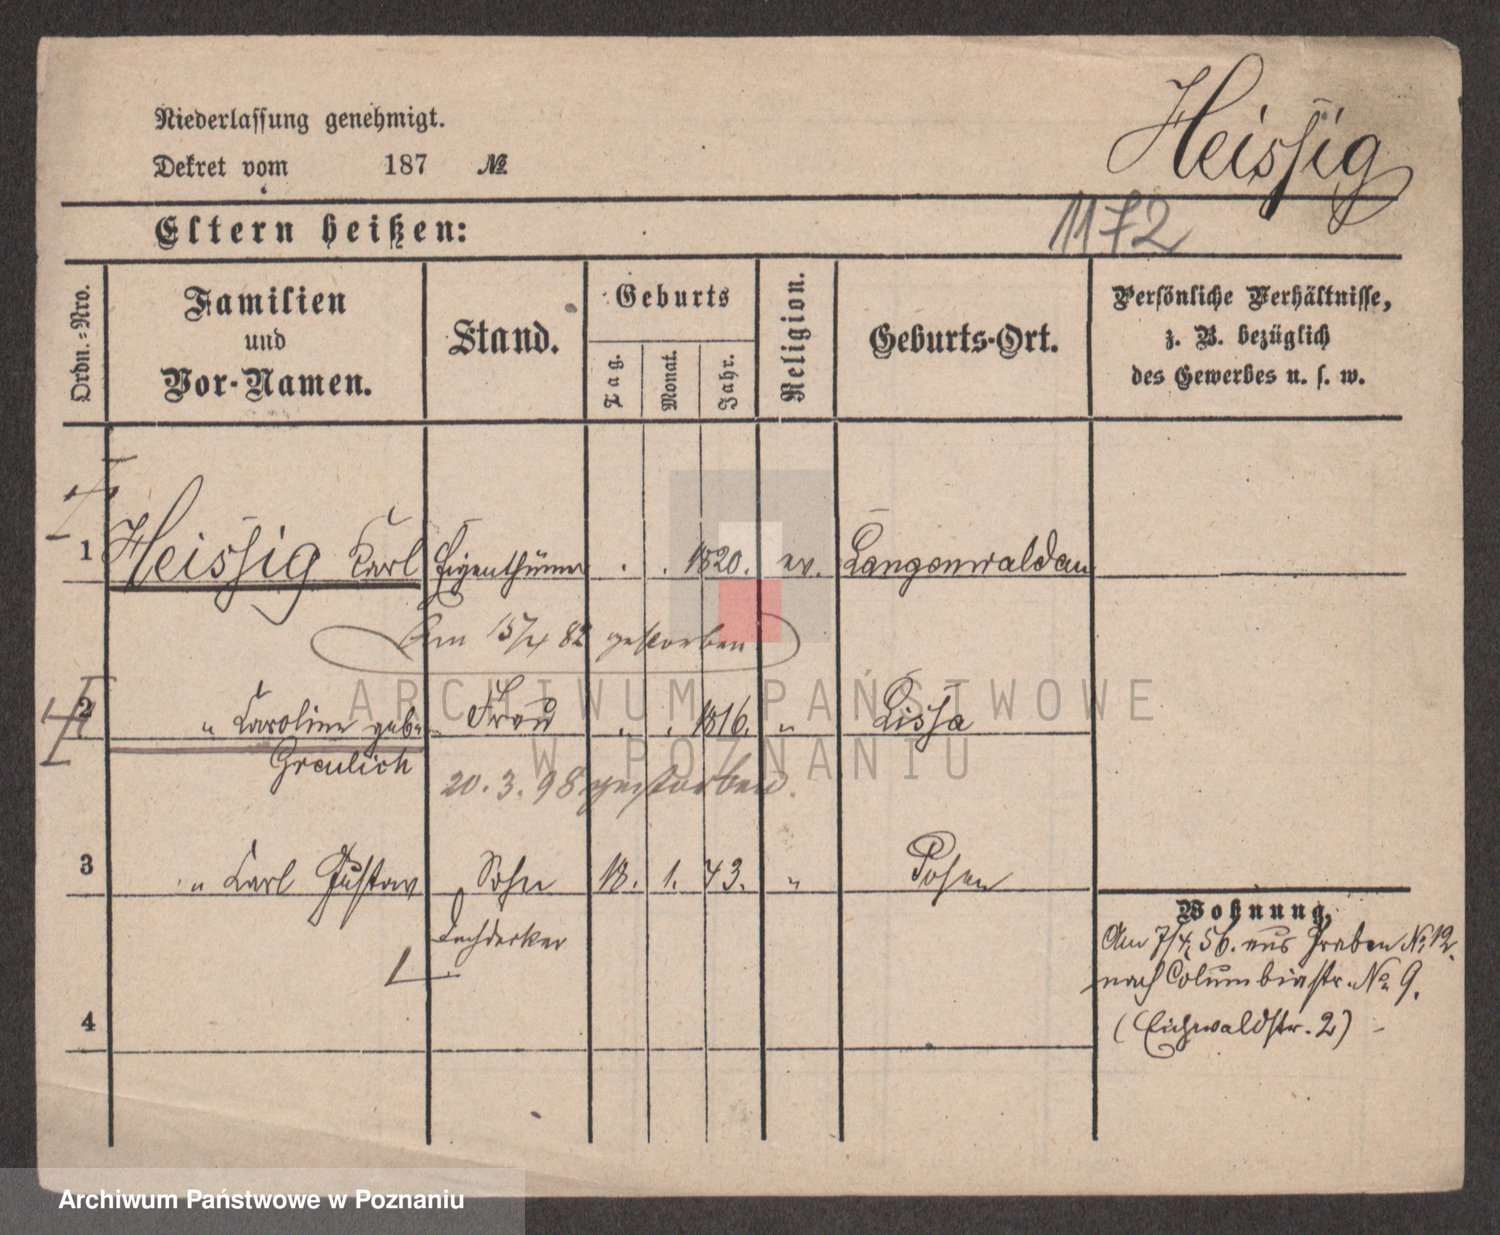 Niederlassung genehmigt.
Dekret vom 187 №
Heissig
Eltern heißen:
1172
Ordn.-Nro.
Familien
und
Vor-Namen.
Stand.
Geburts
Tag.
Monat.
Jahr.
Religion.
Geburts-Ort.
Persönliche Verhältnisse,
z. B. bezüglich
des Gewerbes u. s. w.
1 Heissig Karl Eigenthümer . . 1820. ev. Langenwaldau
Am 15/ 82 gestorben
2 " Caroline geb. Frau " . 1816. " Lissa
Greulich
20.3.98 gestorben.
3 " Carl Gustav Sohn 18. 1. 43. " Posen
Dachdecker
4
Wohnung,
Am 7/4. 56. aus Graben № 12.
nach Columbiastr. № 9.
(Eichwaldstr. 2)
ARCHIWUM PAŃSTWOWE
W POZNANIU
Archiwum Państwowe w Poznaniu